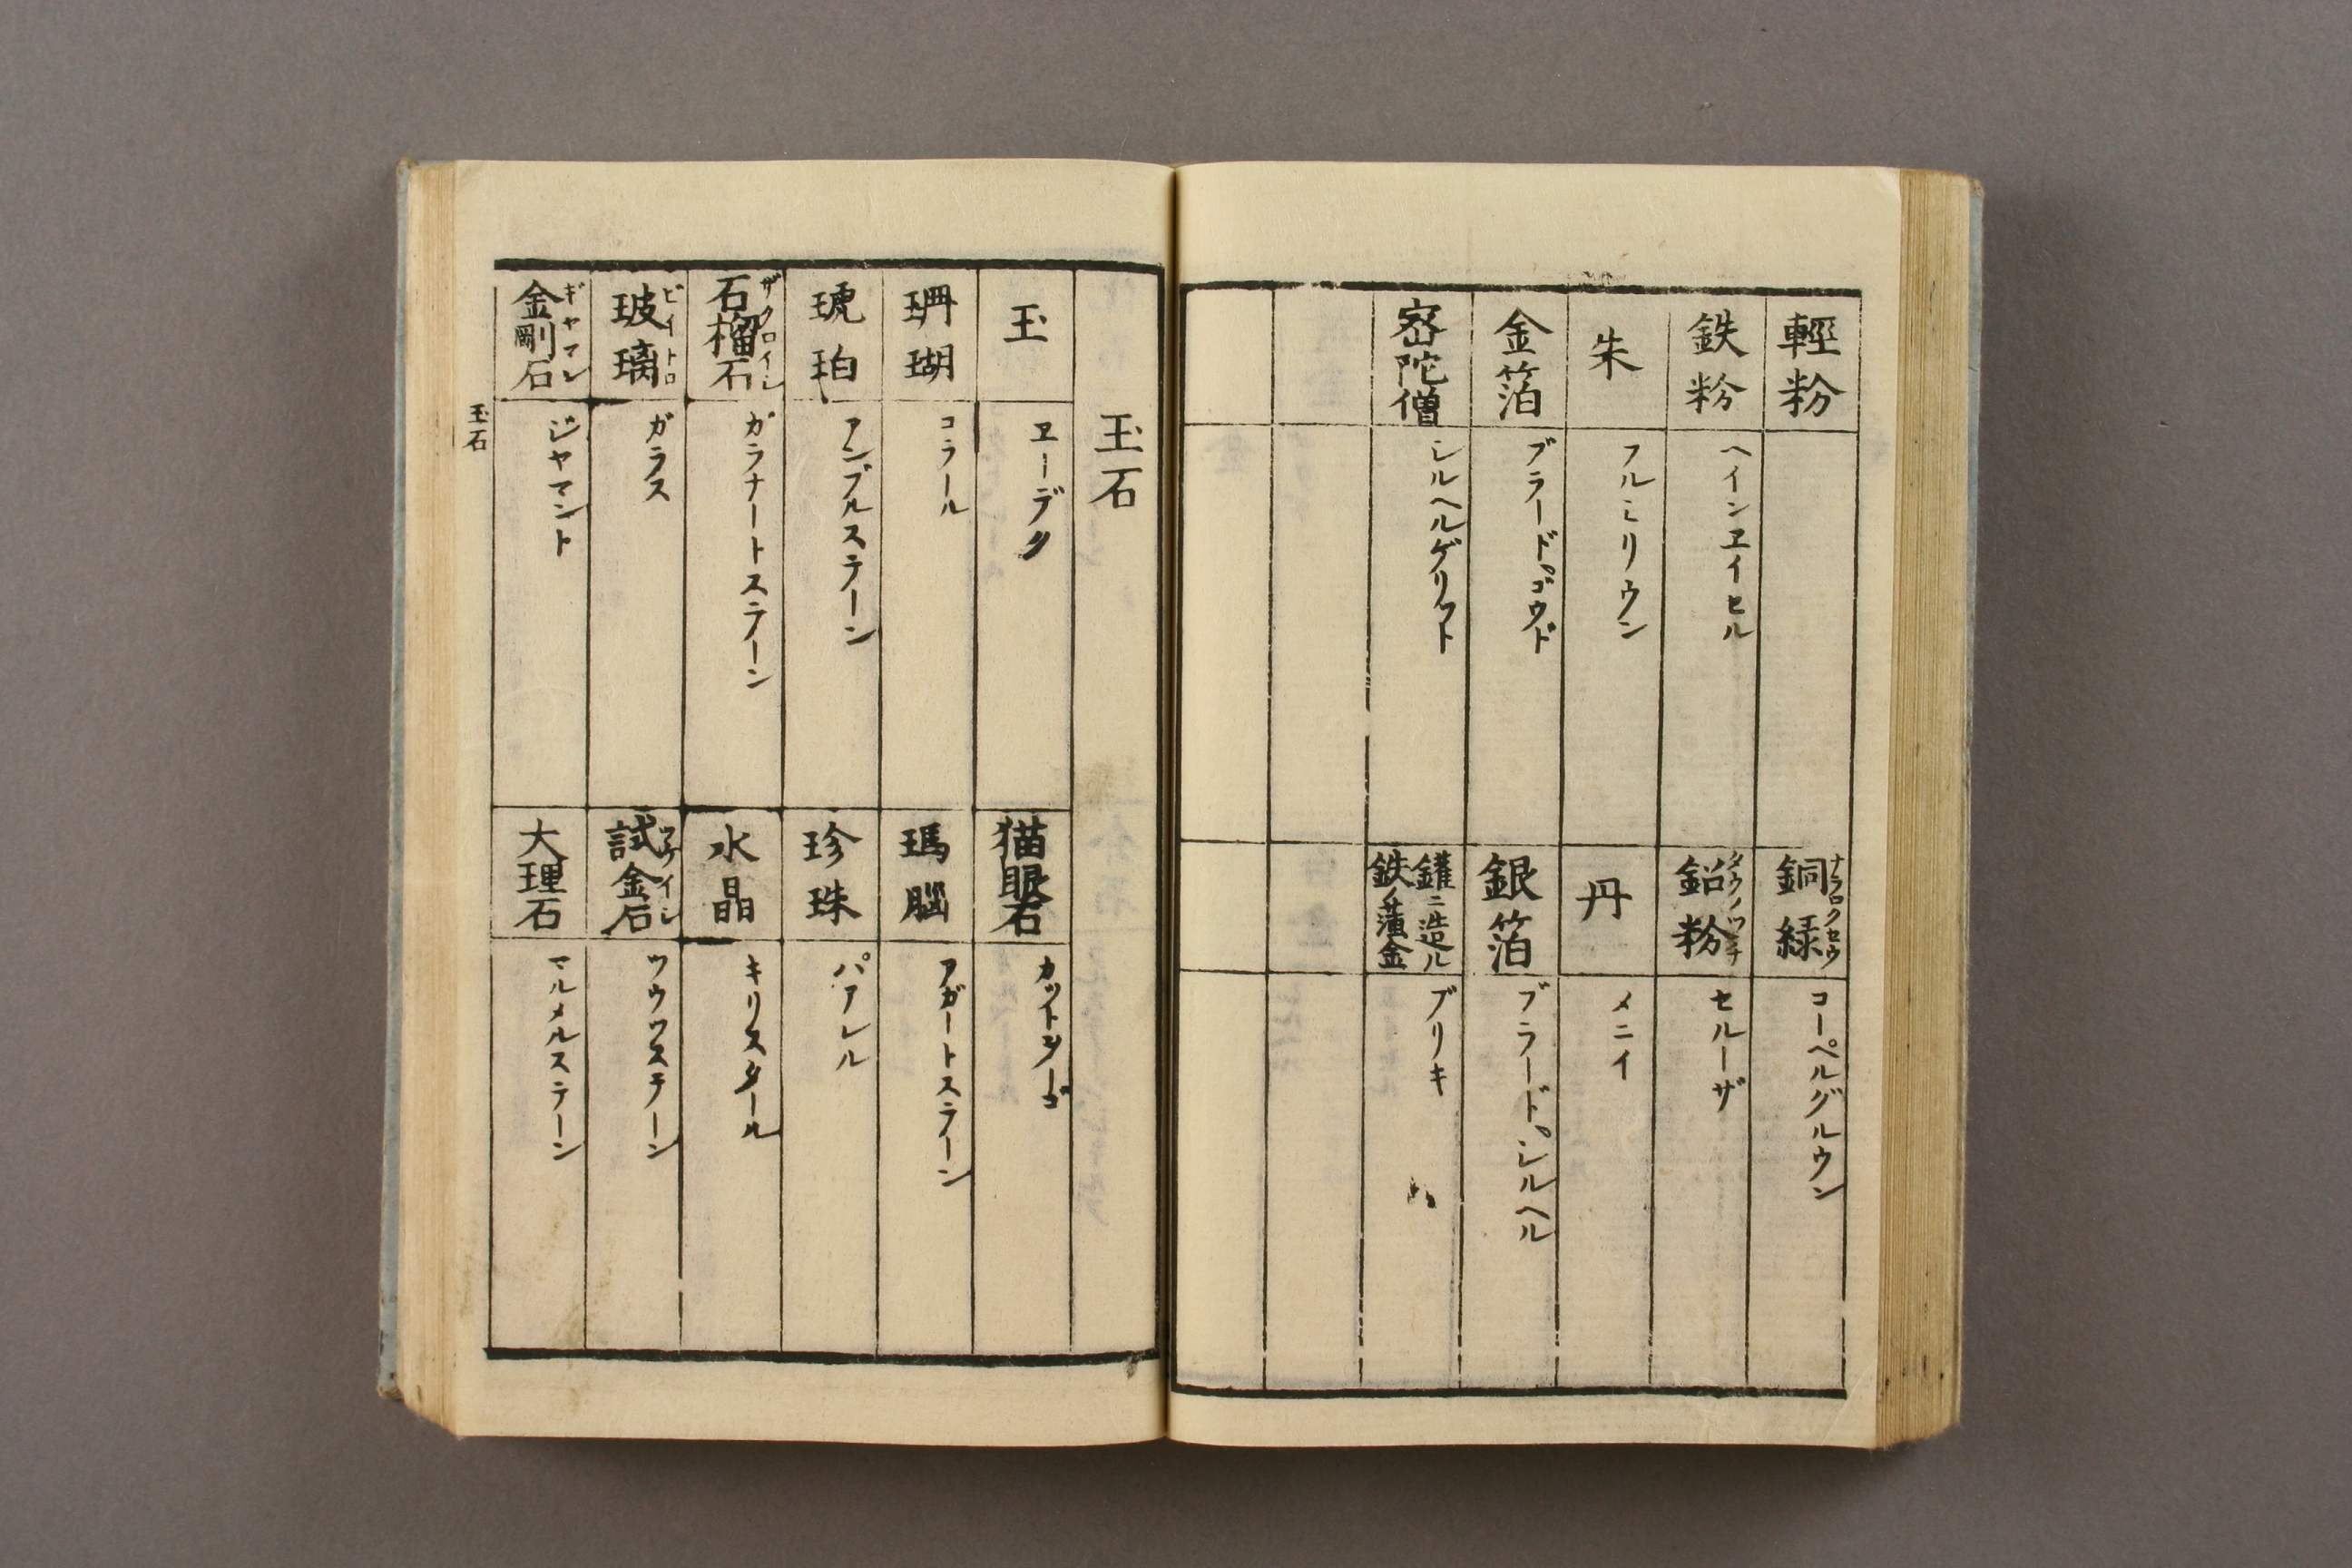 輕粉
銅緑 ナラロクセウ
コーペルグルウン
鉄粉
ヘインヱイセル
鉛粉
セルーザ
朱
フルミリウン
丹
メニイ
金箔
ブラードゴウド
銀箔
ブラードシルヘル
宻陀僧
シルヘルゲリフト
鑵ニ造ル
鉄ノ薄金
ブリキ
玉石
玉
ヱーデク
猫眼石
カットヲーゴ
珊瑚
コラール
瑪腦
アガートステーン
琥珀
アンブルステーン
珍珠
パアレル
石榴石 ザクロイシ
ガラナートステーン
水晶
キリスタール
玻璃 ビイトロ
ガラス
試金石 ツケイシ
ツウツステーン
金剛石 ギヤマン
ジヤマント
大理石
マルメルステーン
玉石